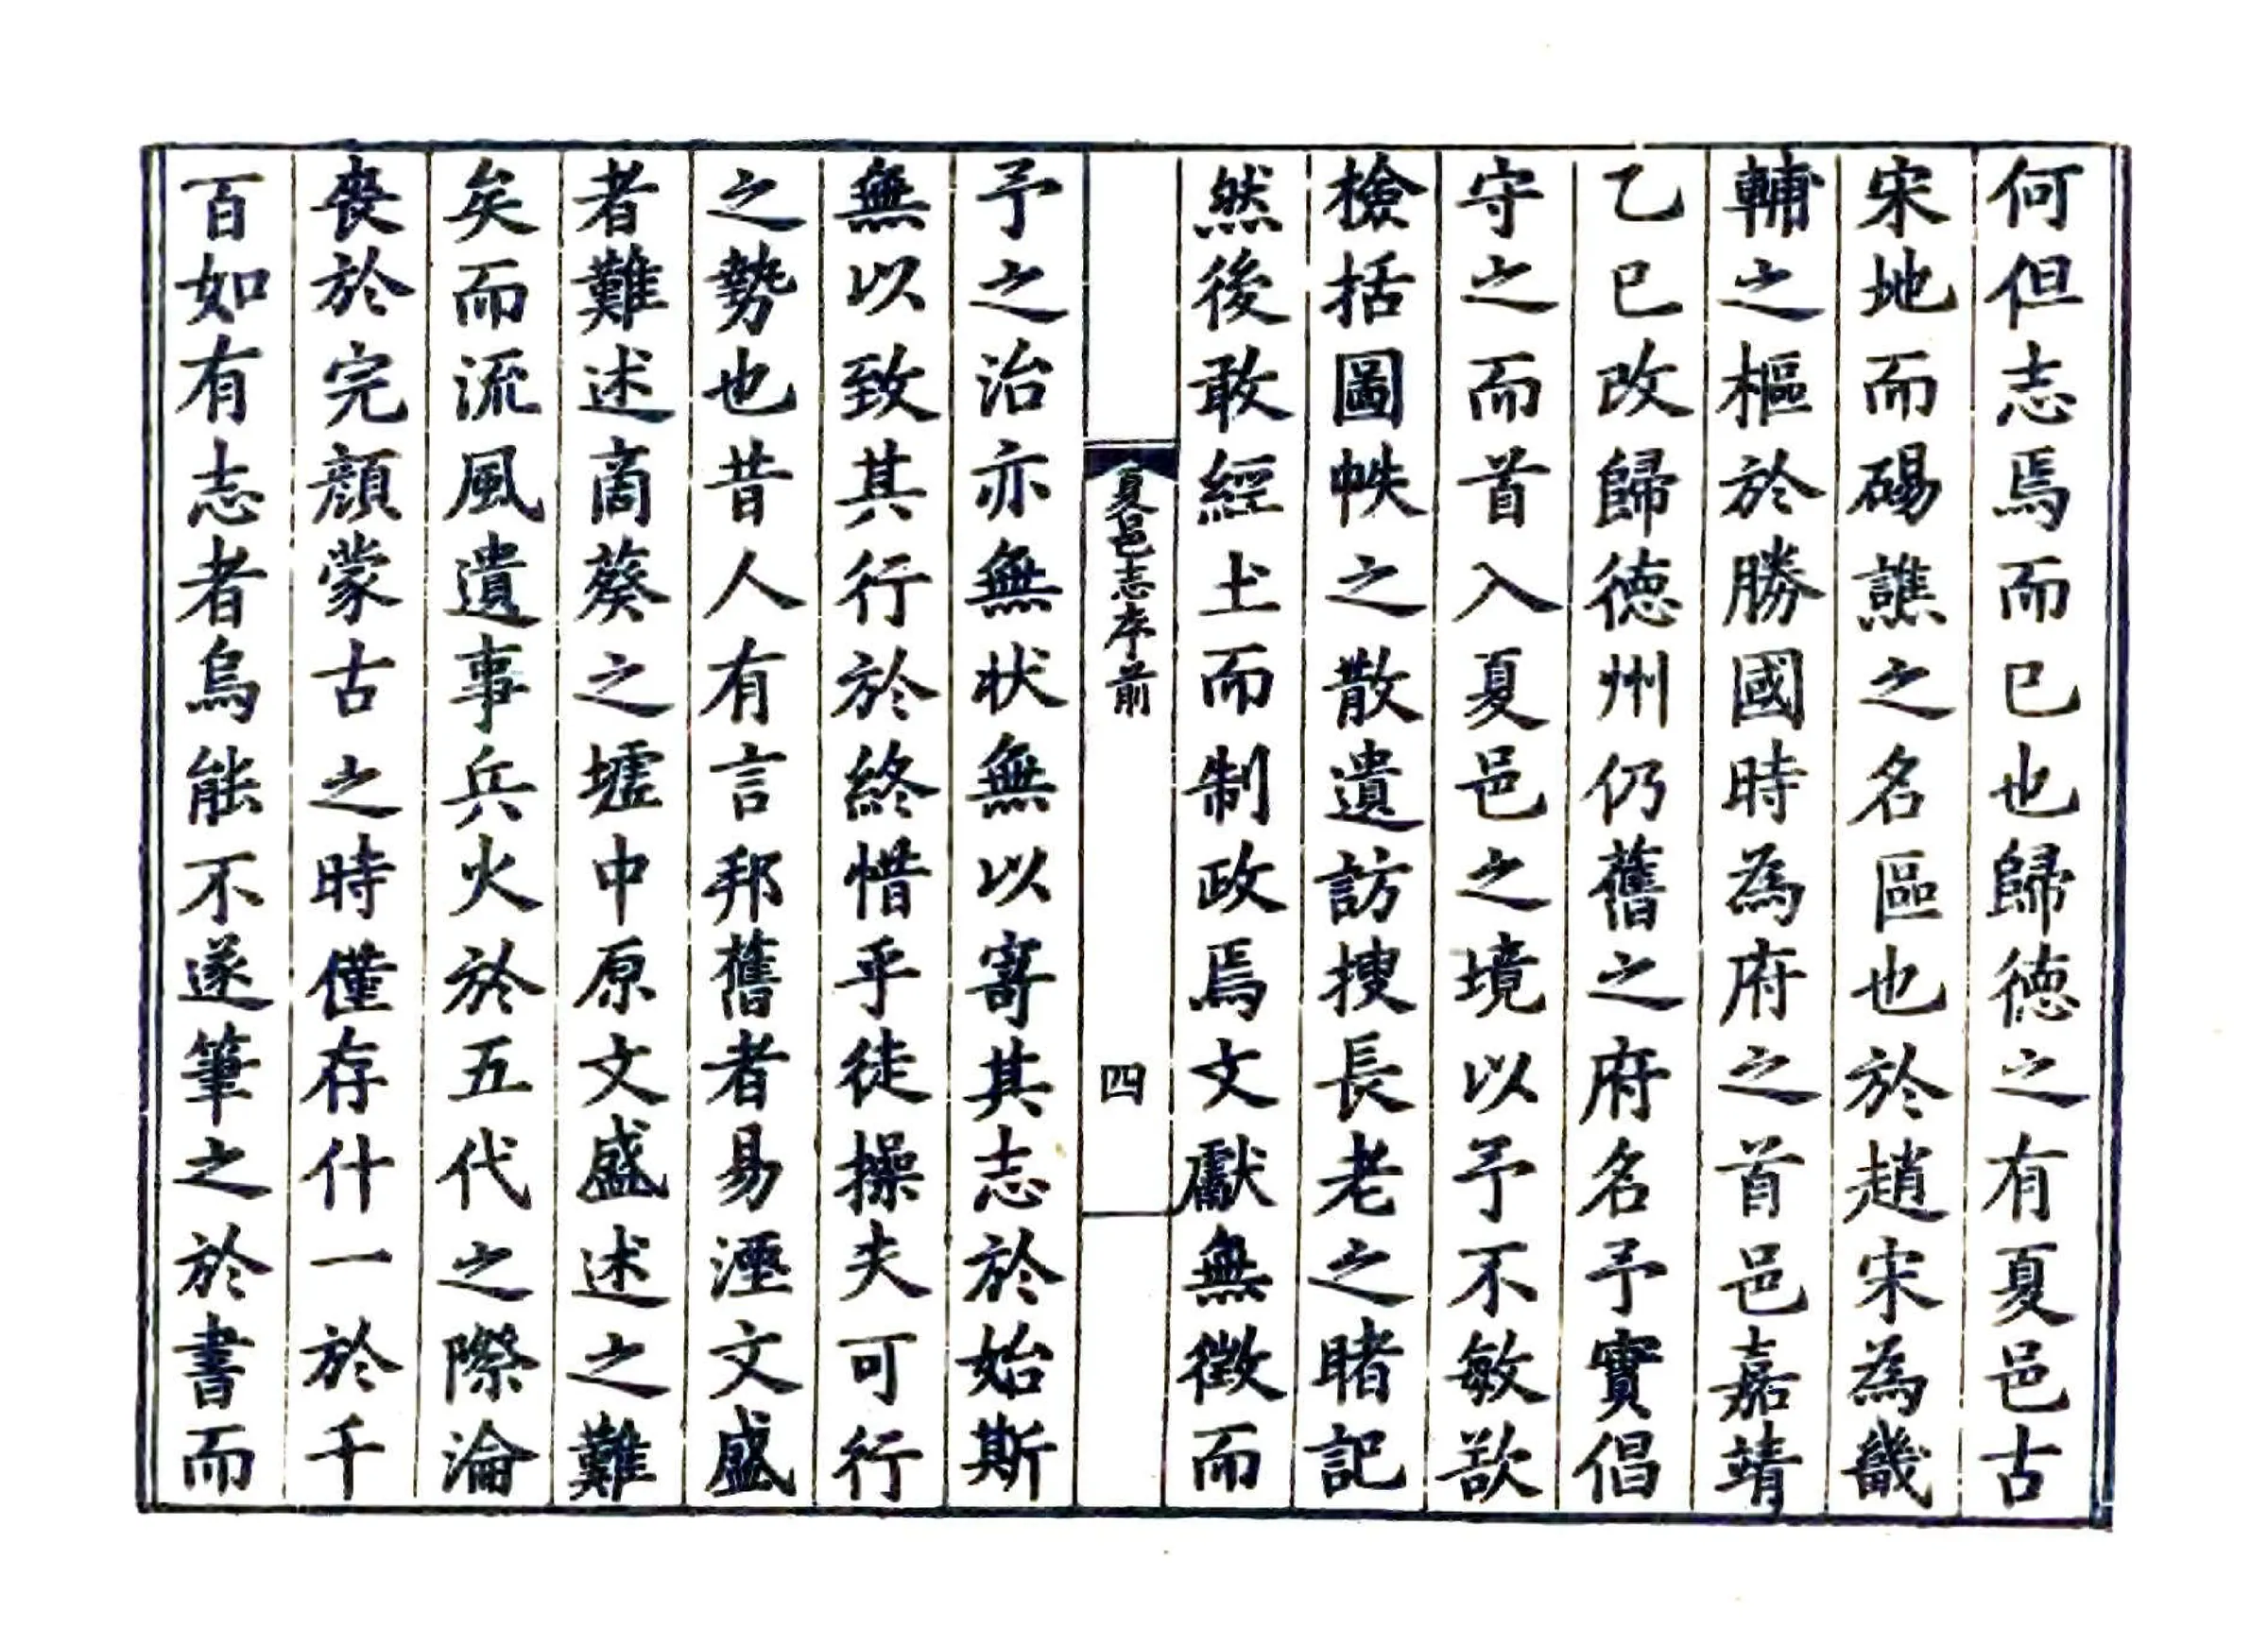 何但志焉而已也歸德之有夏邑古
宋地而碭譙之名區也於趙宋為畿
輔之樞於勝國時為府之首邑嘉靖
乙巳改歸德州仍舊之府名予實倡
守之而首入夏邑之境以予不敏欲
檢括圖帙之散遺訪搜長老之睹記
然後敢經土而制政焉文獻無徵而
夏邑志序前
四
予之治亦無狀無以寄其志於始斯
無以致其行於終惜乎徒操夫可行
之勢也昔人有言邦舊者易湮文盛
者難述商葵之墟中原文盛述之難
矣而流風遺事兵火於五代之際淪
喪於完顏蒙古之時僅存什一於千
百如有志者烏能不遂筆之於書而